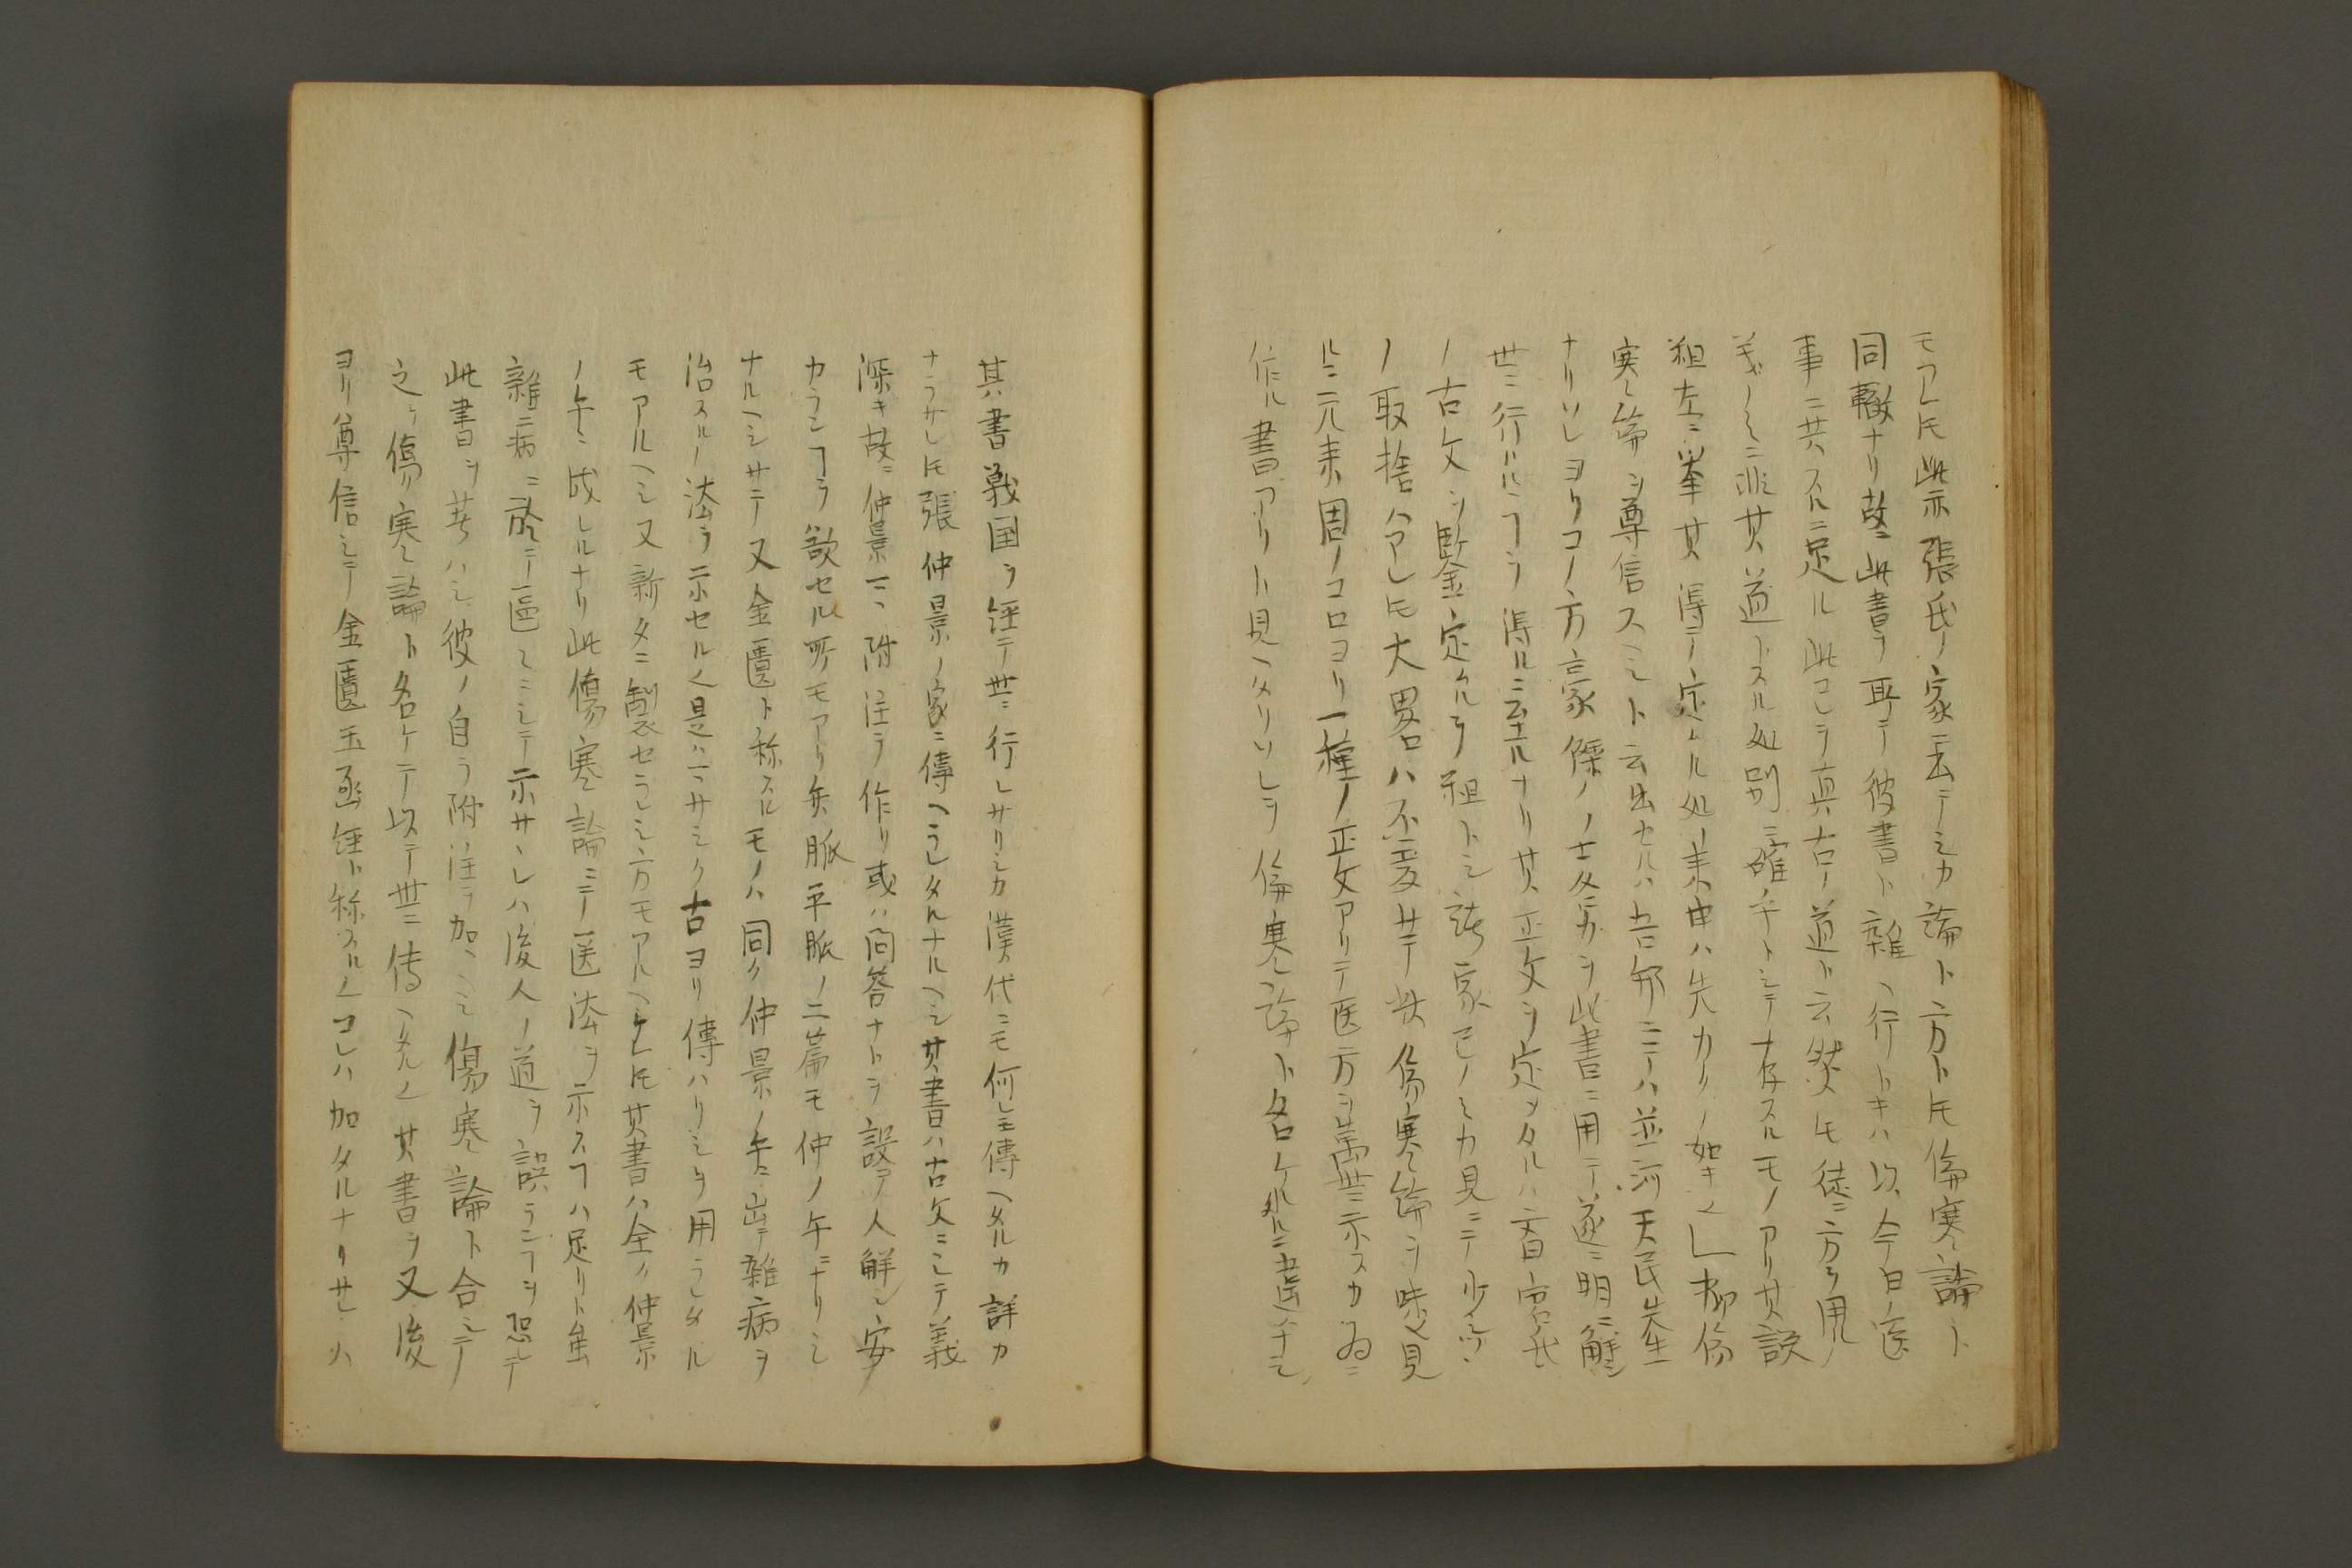 モアレ𪜈此亦張氏ノ家ニ云テシカ論ト方ト𪜈傷寒論ト
同轍ナリ故ニ此書ヲ取テ彼書ト雑ヘ行トキハ以今日ノ医
事ニ共スルニ足ル此コヲ真古ノ道ト云然𪜈徒ニ方ヲ用ノ
ミニ非其道トスル処別ニ確乎トシテ存スルモノアリ其説
粗左ニ挙其得テ定ムル処ノ来由ハ先カリノ如キ也」抑傷
寒論ヲ尊信スヘシト云出セルハ吾邦ニテハ並河天民先生
ナリソレヨリコノ方豪傑ノ士各力ヲ此書ニ用テ遂ニ明ニ解シ
世ニ行ハルヽヿヲ得ルニ至ルナリ其正文ヲ定メタルハ
ノ古文ヲ鑒定タルヲ祖トシ諸家己ノミカ見ニテ少シツヽ
ノ取捨ハアレ𪜈大畧ハ不変サテ此傷寒論ヲ味ヒ見
ルニ元来周ノコロヨリ一種ノ正文アリテ医方ヲ萬世ニ示スカ為ニ
作ル書アリト見ヘタリソレヲ傷寒論ト名ケルニ
其書戦国ヲ経テ世ニ行レサリシカ漢代ニモ何レニ傳ヘタルカ詳カ
ナラサレ𪜈張仲景ノ家ニ傳ヘラレタルナルヘシ其書ハ古文ニシテ義
深キ故ニ仲景一ニ附注ヲ作リ或ハ問答ナトヲ設テ人解シ安
カランヿヲ欲セル所モアリ矣脈平脈ノ二篇モ仲ノ手ニナリシ
ナルヘシサテ又金匱ト称スルモノハ同ク仲景ノ手ニ出テ雑病ヲ
治スルノ法ヲ示セルナ是ハマサシク古ヨリ傳ハリシヲ用ラレタル
モアルヘシ又新タニ製セラレシ方モアルヘケレ𪜈其書ハ全ク仲景
ノ手ニ成レルナリ此傷寒論ニテ医法ヲ示スヿハ足リト虽
雑病ニ於テ區々ニシテ示サヽレハ後人ノ道ヲ誤ランヿヲ恐レテ
此書ヲ著ハシ彼ノ自ラ附注ヲ加ヘシ傷寒論ト合シテ
之ヲ傷寒論ト名ケテ以テ世ニ傳ヘタル也其書ヲ又後
ヨリ尊信シテ金匱玉函経ト称スル也コレハ加タルナリサレハ